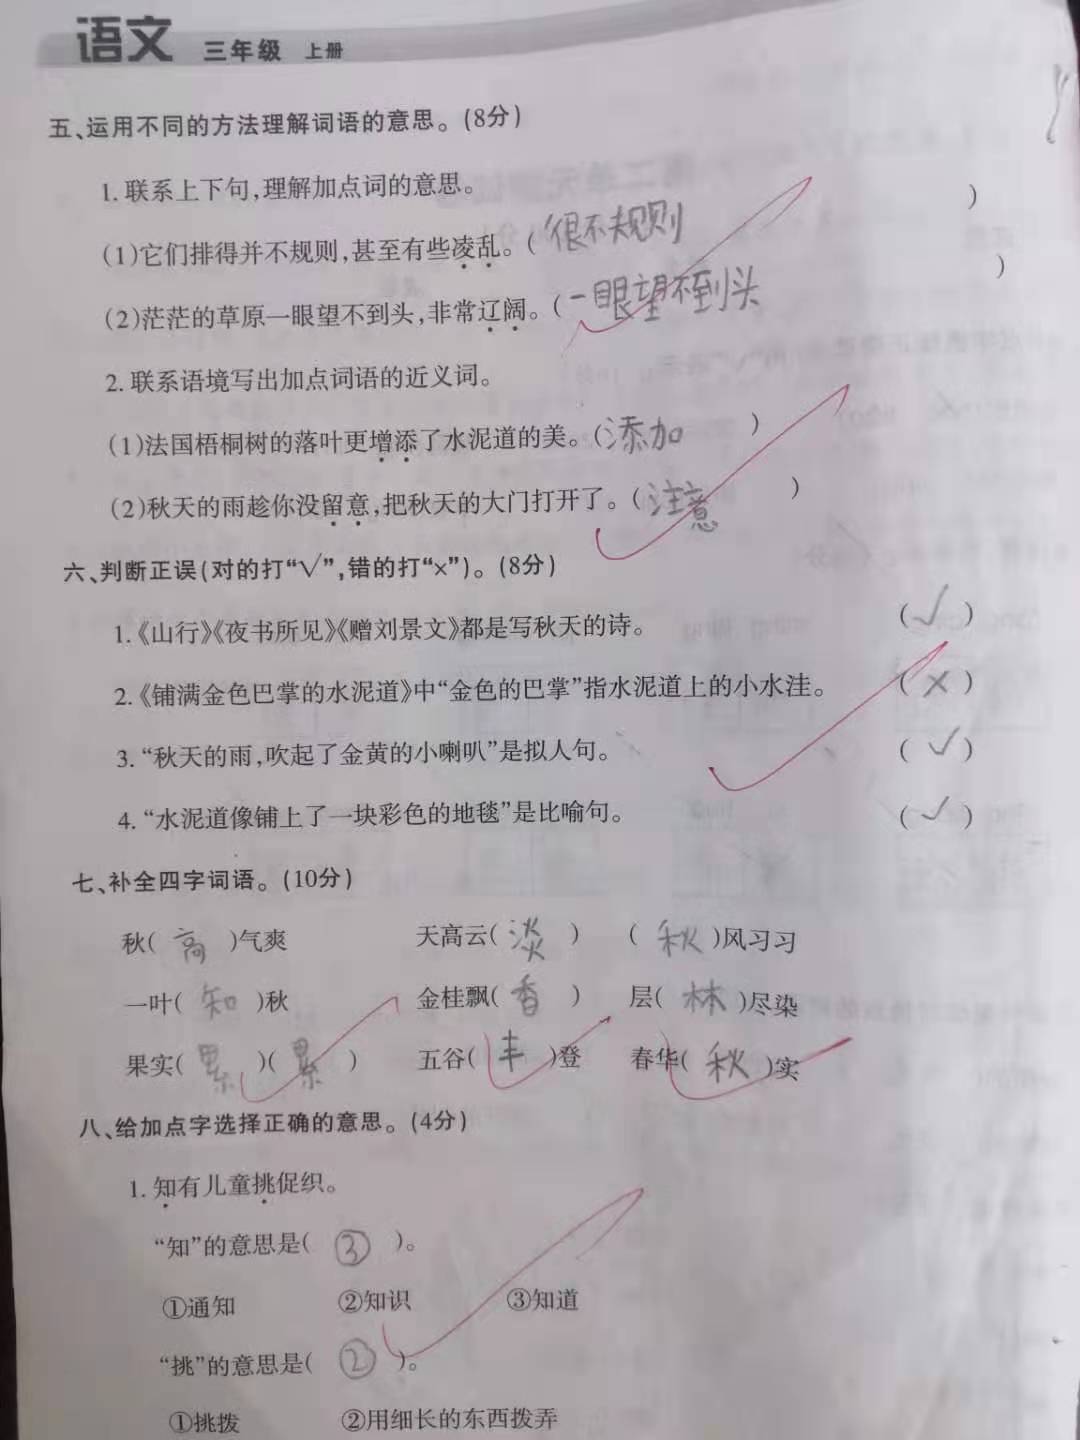 语文 三年级 上册
五、运用不同的方法理解词语的意思。(8分)
1. 联系上下句,理解加点词的意思。
(1)它们排得并不规则,甚至有些凌乱。( 很不规则 )
(2)茫茫的草原一眼望不到头,非常辽阔。( 一眼望不到头 )
2. 联系语境写出加点词语的近义词。
(1)法国梧桐树的落叶更增添了水泥道的美。( 添加 )
(2)秋天的雨趁你没留意,把秋天的大门打开了。( 注意 )
六、判断正误(对的打“√”,错的打“×”)。(8分)
1.《山行》《夜书所见》《赠刘景文》都是写秋天的诗。 ( √ )
2.《铺满金色巴掌的水泥道》中“金色的巴掌”指水泥道上的小水洼。 ( × )
3. “秋天的雨,吹起了金黄的小喇叭”是拟人句。 ( √ )
4. “水泥道像铺上了一块彩色的地毯”是比喻句。 ( √ )
七、补全四字词语。(10分)
秋( 高 )气爽 天高云( 淡 ) ( 秋 )风习习
一叶( 知 )秋 金桂飘( 香 ) 层( 林 )尽染
果实( 累 )( 累 ) 五谷( 丰 )登 春华( 秋 )实
八、给加点字选择正确的意思。(4分)
1. 知有儿童挑促织。
“知”的意思是( ③ )。
①通知 ②知识 ③知道
“挑”的意思是( ② )。
①挑拨 ②用细长的东西拨弄